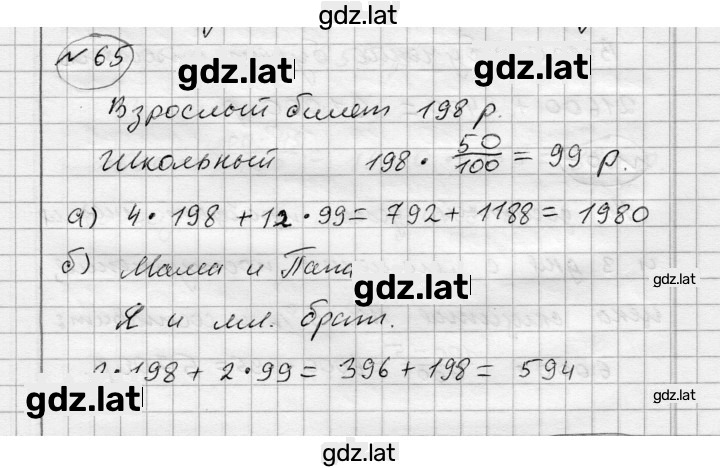 gdz.lat
№ 65
gdz.lat
gdz.lat
Взрослый билет 198 р.
Школьный 198 · 50/100 = 99 р.
а) 4 · 198 + 12 · 99 = 792 + 1188 = 1980
б) Мама и Папа
gdz.lat
gdz.lat
Я и мл. брат.
· 198 + 2 · 99 = 396 + 198 = 594
gdz.lat
gdz.lat
gdz.lat